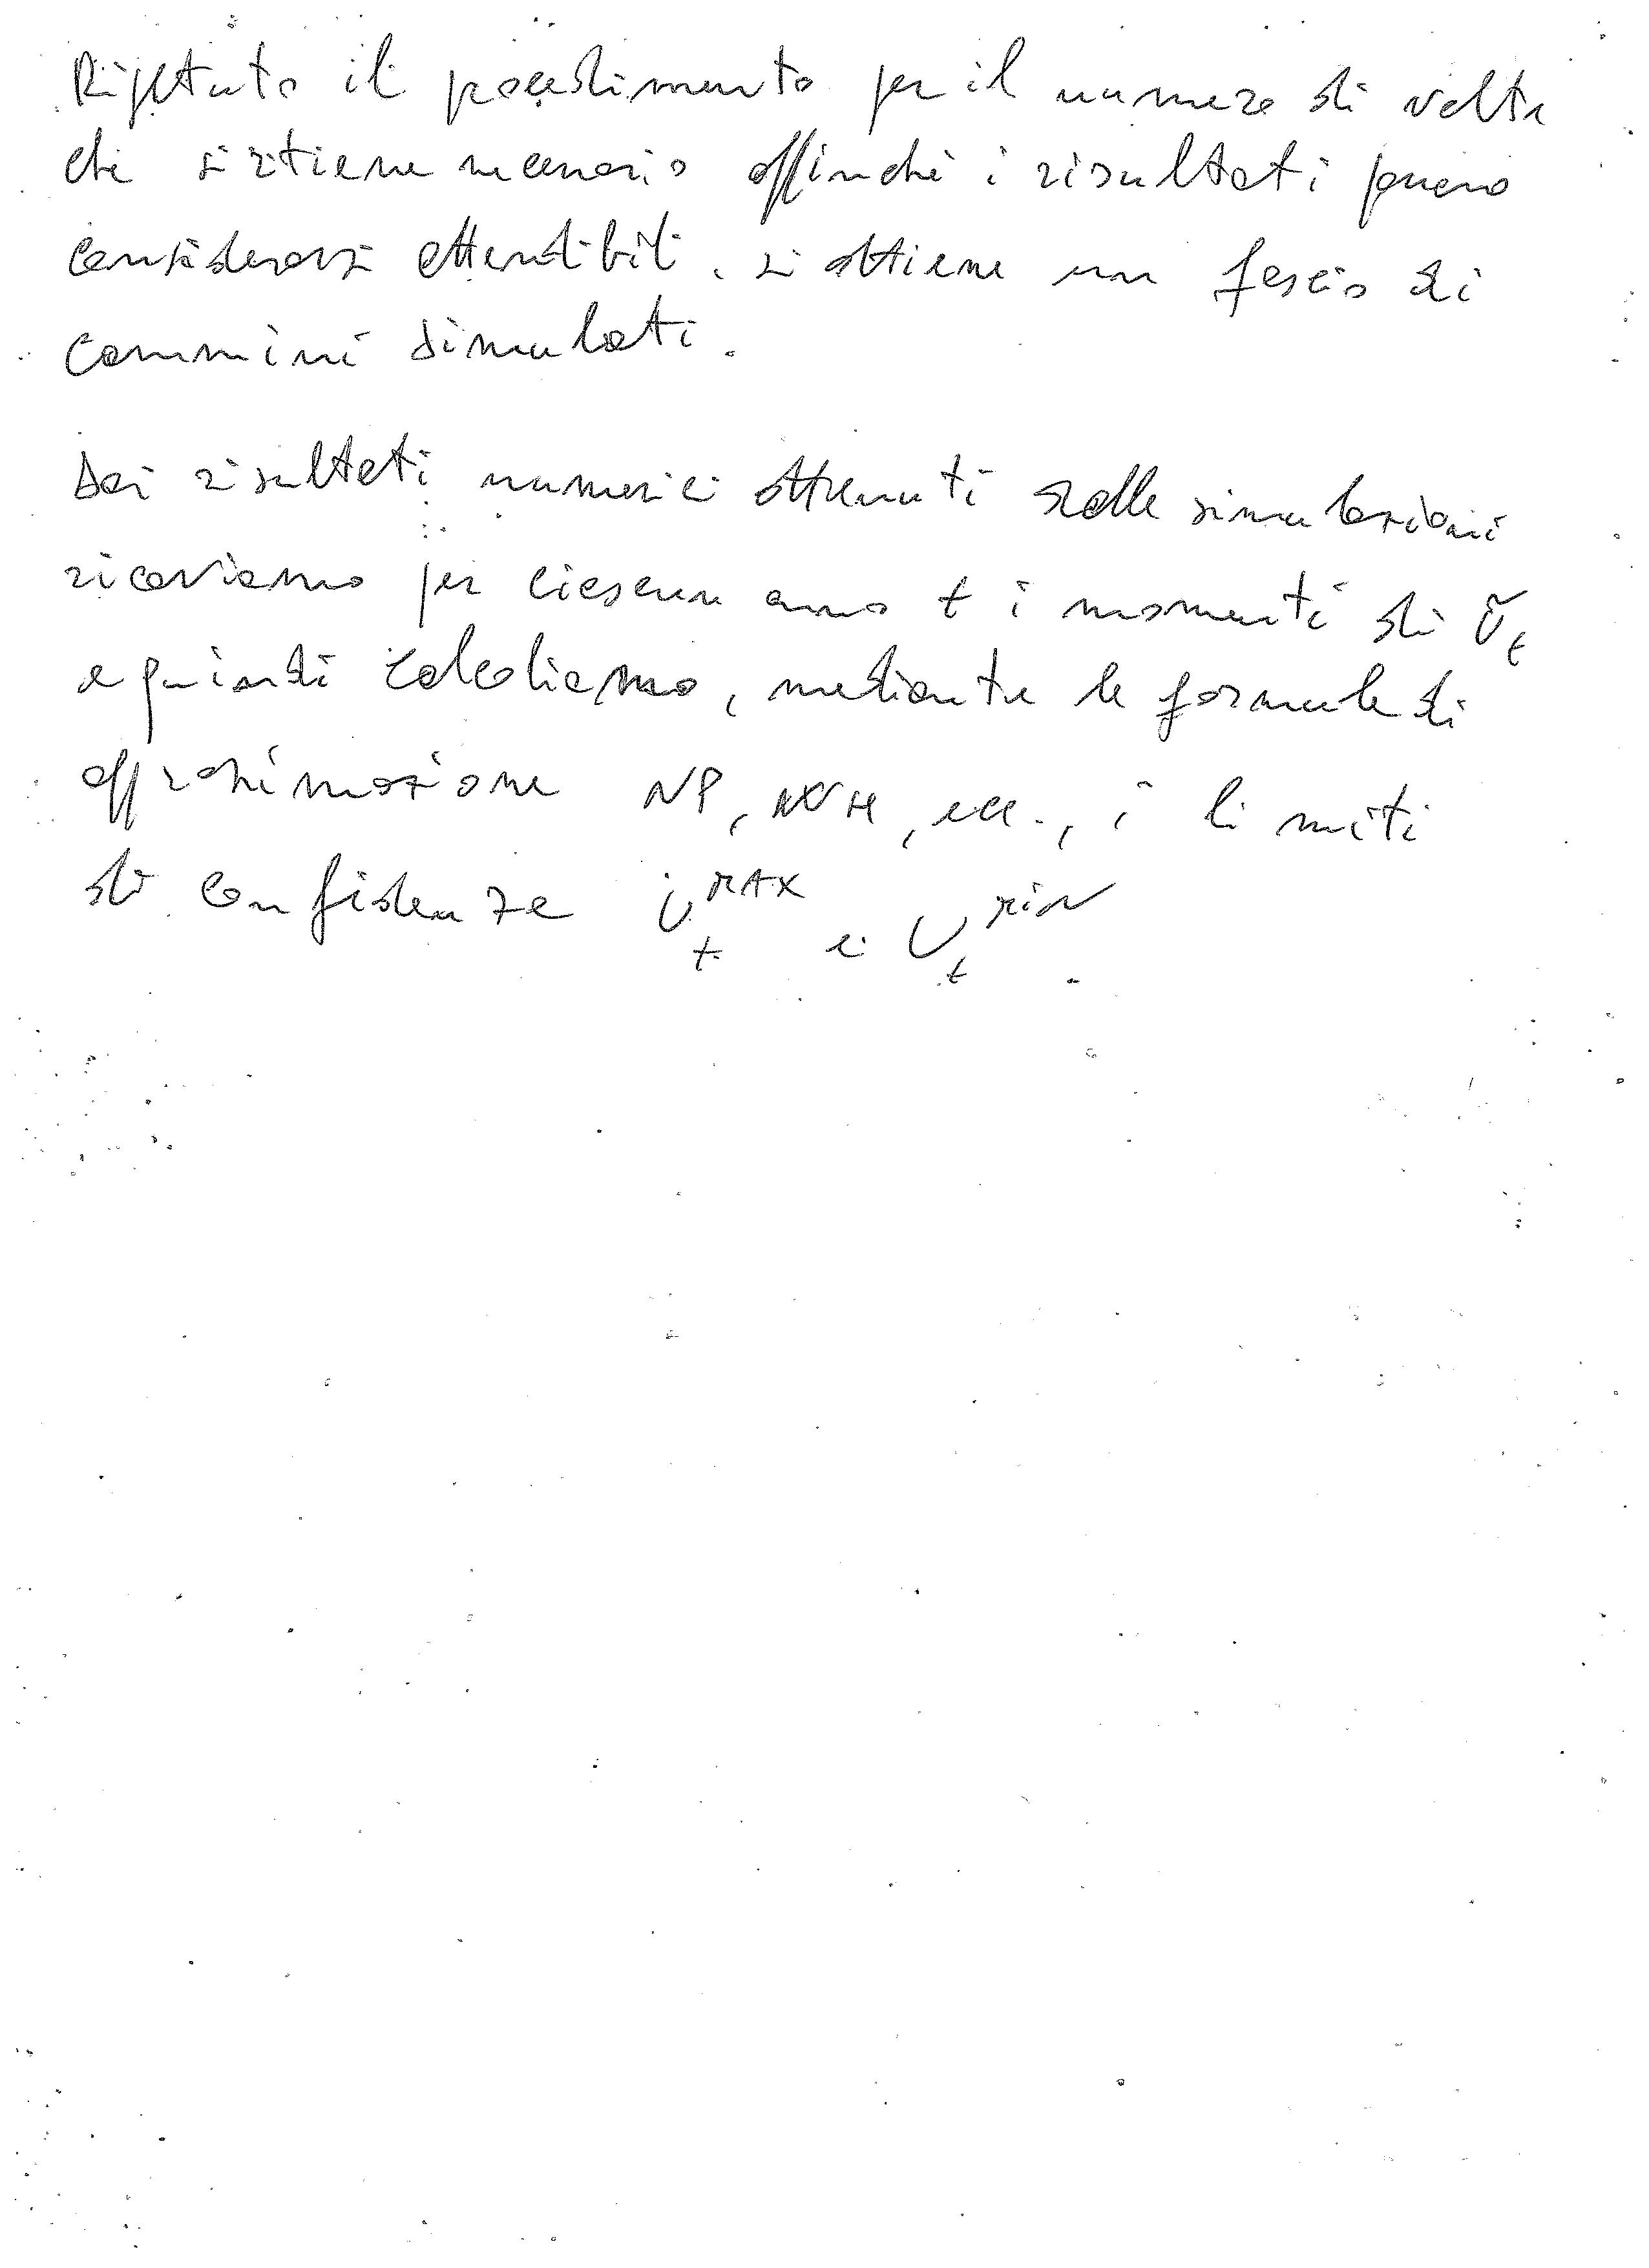 Ripetuto il procedimento per il numero di volte
che si ritiene necessario affinché i risultati possano
considerarsi attendibili, si ottiene un fascio di
cammini simulati.
Dai risultati numerici ottenuti dalle simulazioni
ricaviamo per ciascun anno t i momenti di Ũt
e quindi calcoliamo, mediante le formule di
approssimazione NP, , ecc., i limiti
di confidenza Ut MAX e Ut MIN.